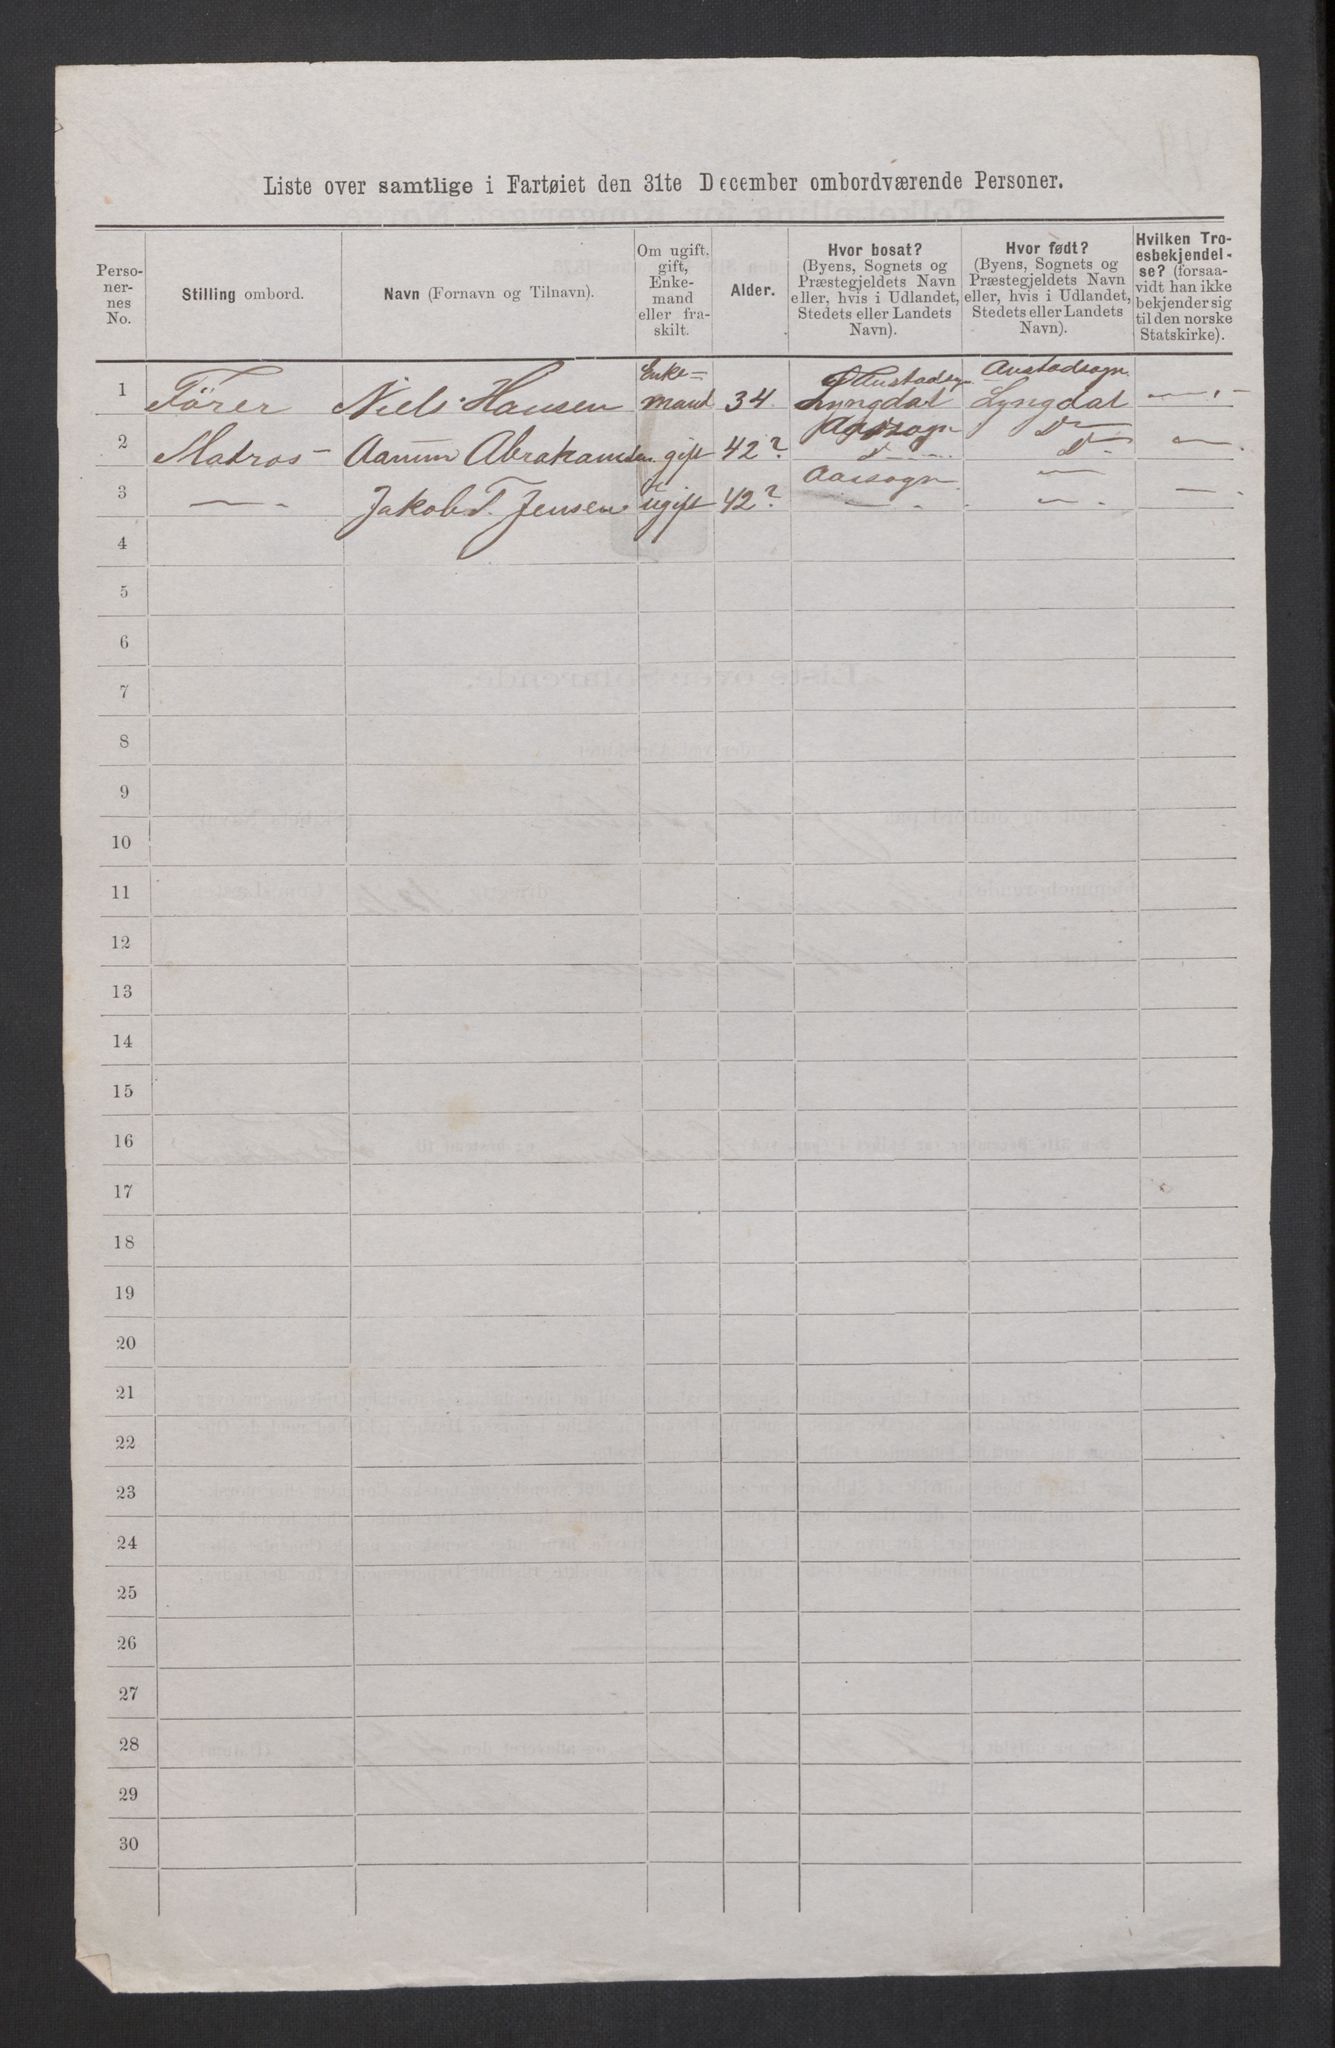 Liste over samtlige i Fartøiet den 31te December ombordværende Personer.
Perso-
ner-
nes
No.
Stilling ombord.
Navn (Fornavn og Tilnavn).
Om ugift,
gift,
Enke-
mand
eller fra-
skilt.
Alder.
Hvor bosat?
(Byens, Sognets og
Præstegjeldets Navn
eller, hvis i Udlandet,
Stedets eller Landets
Navn).
Hvor født?
(Byens, Sognets og
Præstegjeldets Navn
eller, hvis i Udlandet,
Stedets eller Landets
Navn).
Hvilken Tro-
esbekjendel-
se? (forsaa-
vidt han ikke
bekjender sig
til den norske
Statskirke).
Enke= Austadsogn
1 Förer Niels Hansen mand 34 Lyngdal Lyngdal —
Aassogn Do
2 Matros Abrahamsen gift 42? d— Do —
Aassogn —
3 — Jakob T. Jensen ugift 42? — — —
4
5
6
7
8
9
10
11
12
13
14
15
16
17
18
19
20
21
22
23
24
25
26
27
28
29
30